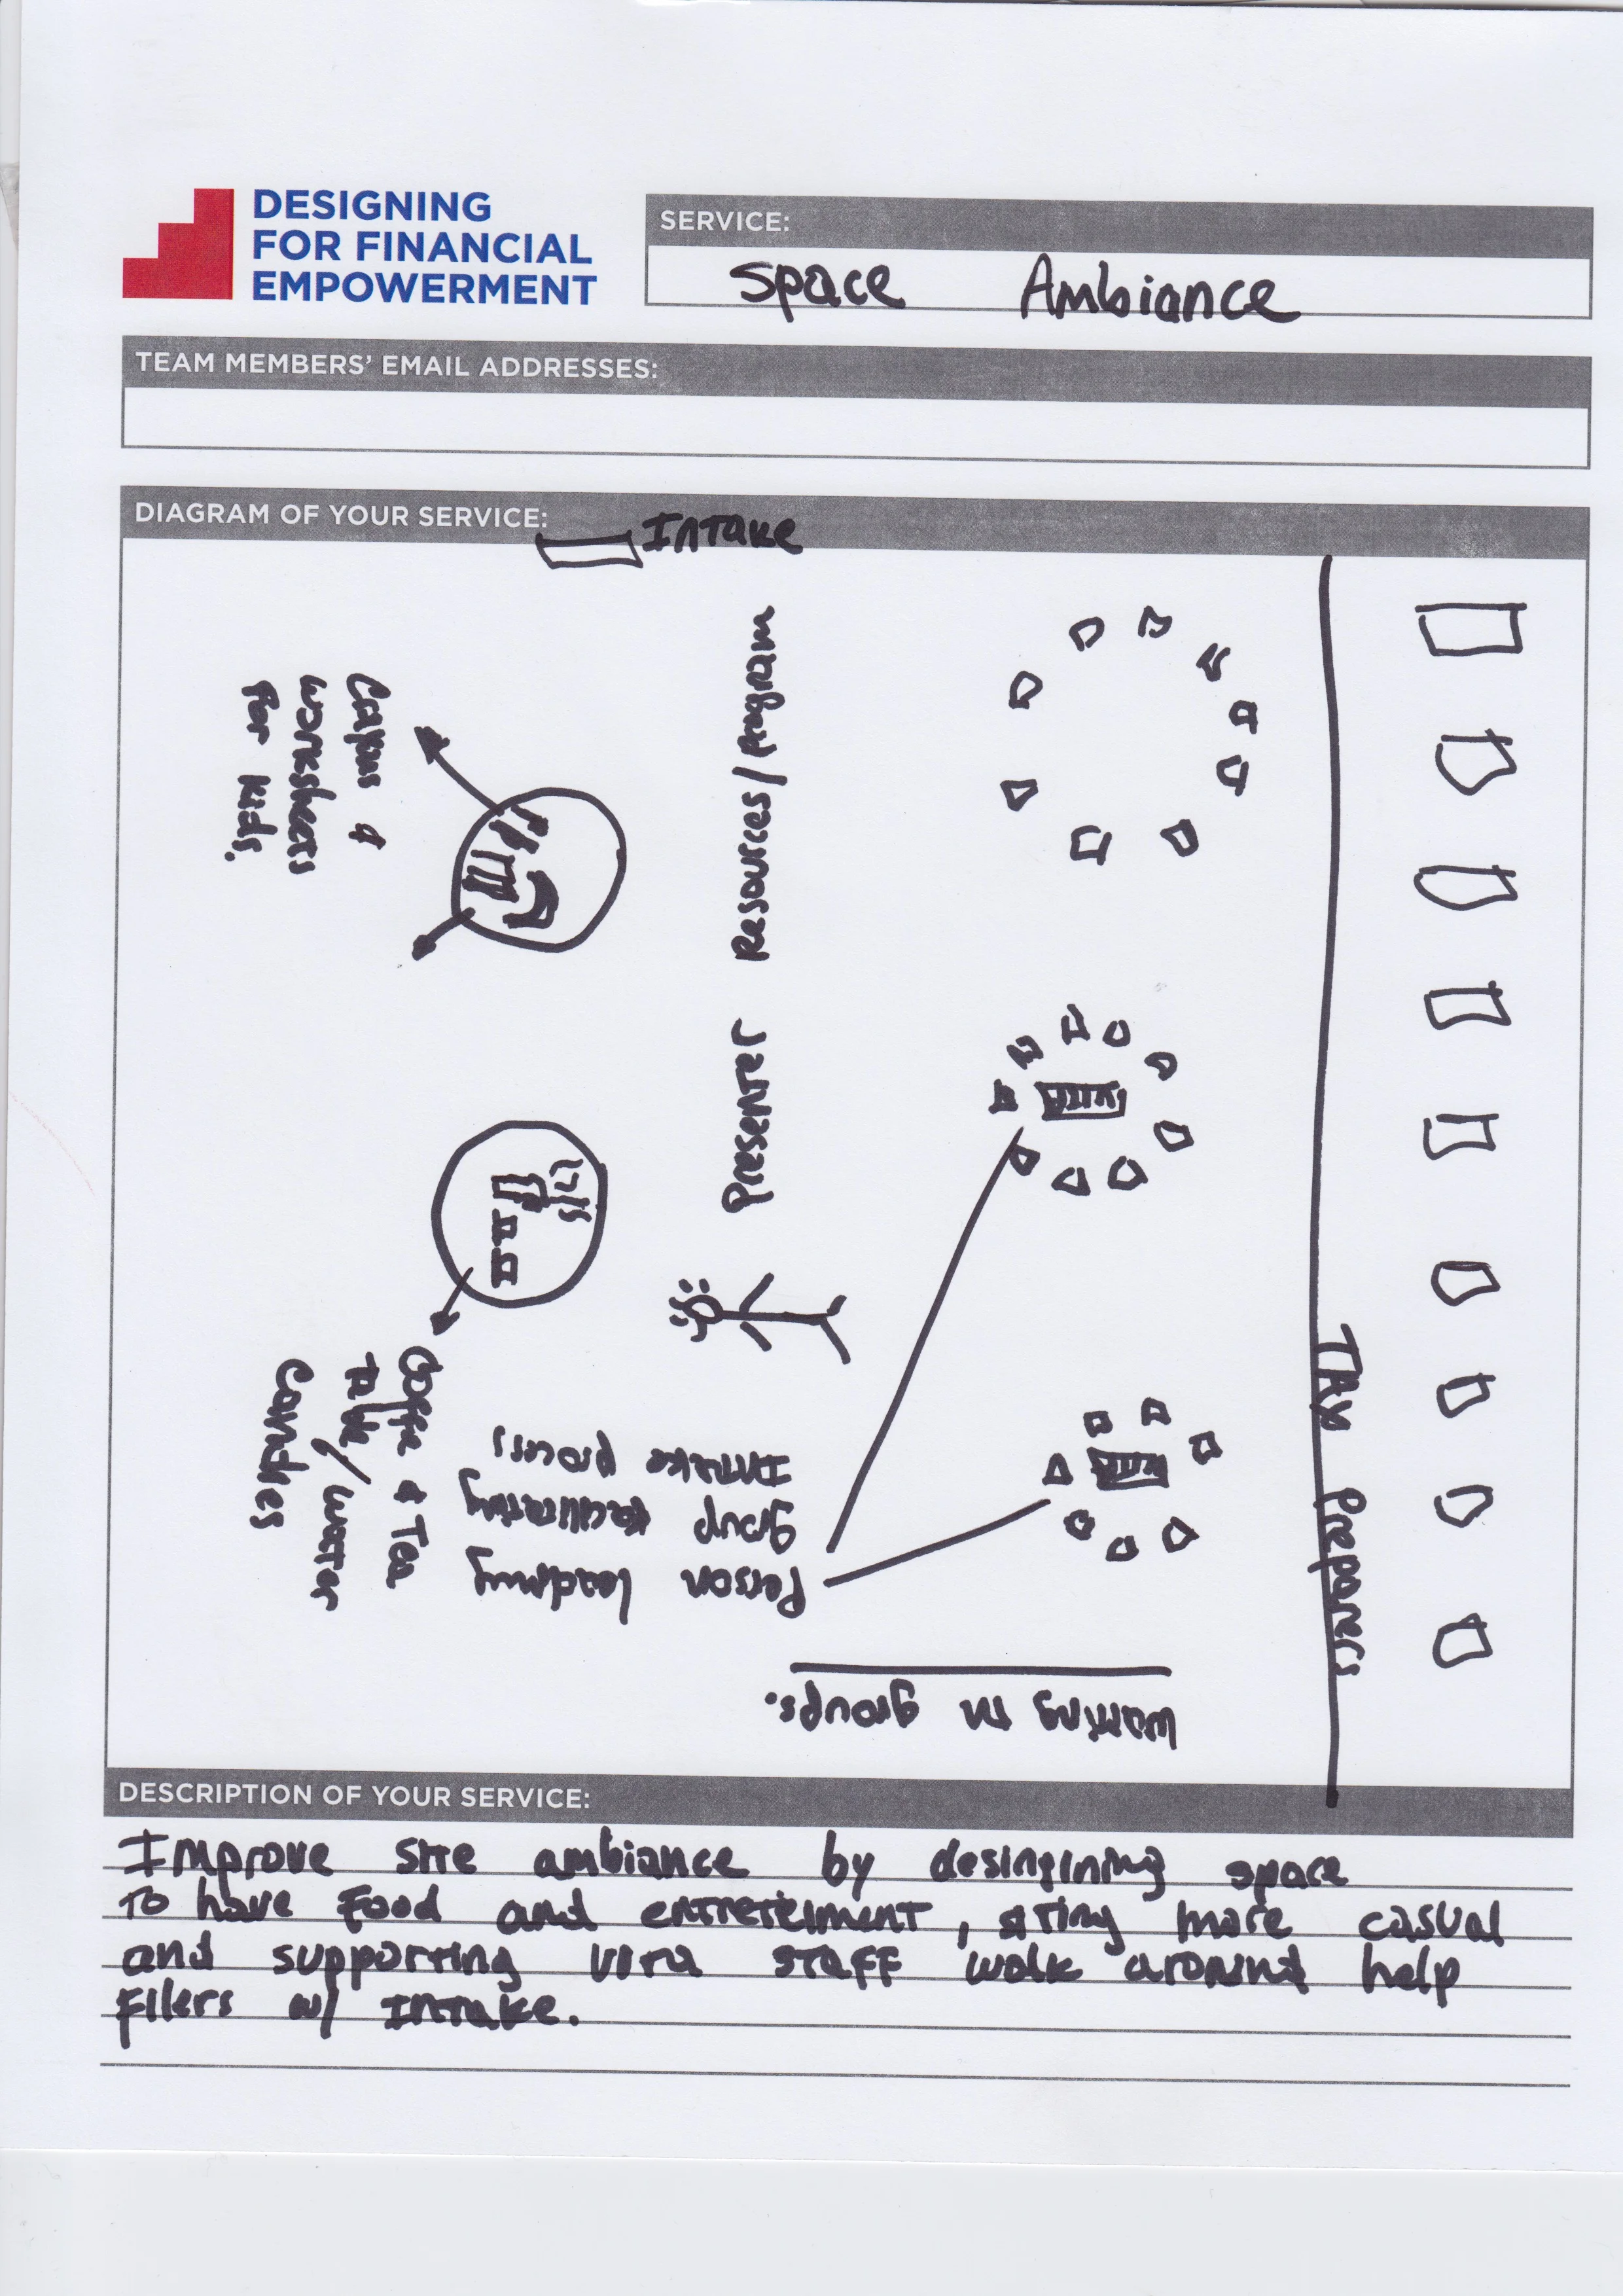 DESIGNING
FOR FINANCIAL
EMPOWERMENT
SERVICE:
Space Ambiance
TEAM MEMBERS' EMAIL ADDRESSES:
DIAGRAM OF YOUR SERVICE:
Intake
Crayons &
worksheets
for kids.
Presenter Resources/program
Coffee & Tea
Table/water
Candies
Person leading
group facilitating
Intake process
waiting in groups.
Tax Preparers
DESCRIPTION OF YOUR SERVICE:
Improve site ambiance by desingining space
To have food and entreteiment, siting more casual
and supporting vita staff walk around help
filers w/ Intake.